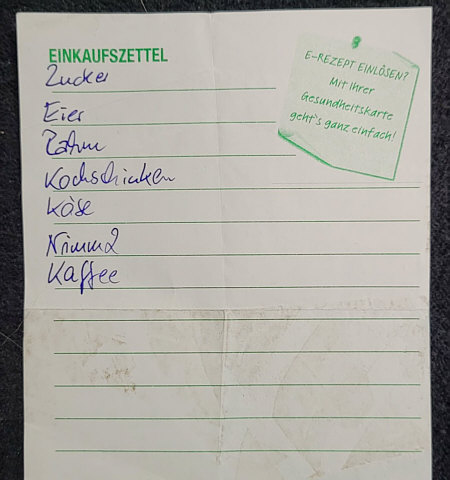 EINKAUFSZETTEL
Zucker
Eier
Rahm
Kochschinken
Käse
Nimm2
Kaffee
E-REZEPT EINLÖSEN?
Mit Ihrer
Gesundheitskarte
geht's ganz einfach!